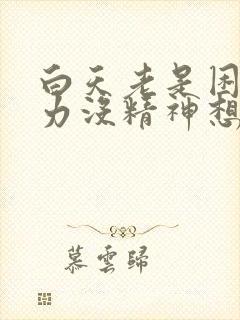 白天老是困
力没精神想
慕雲歸